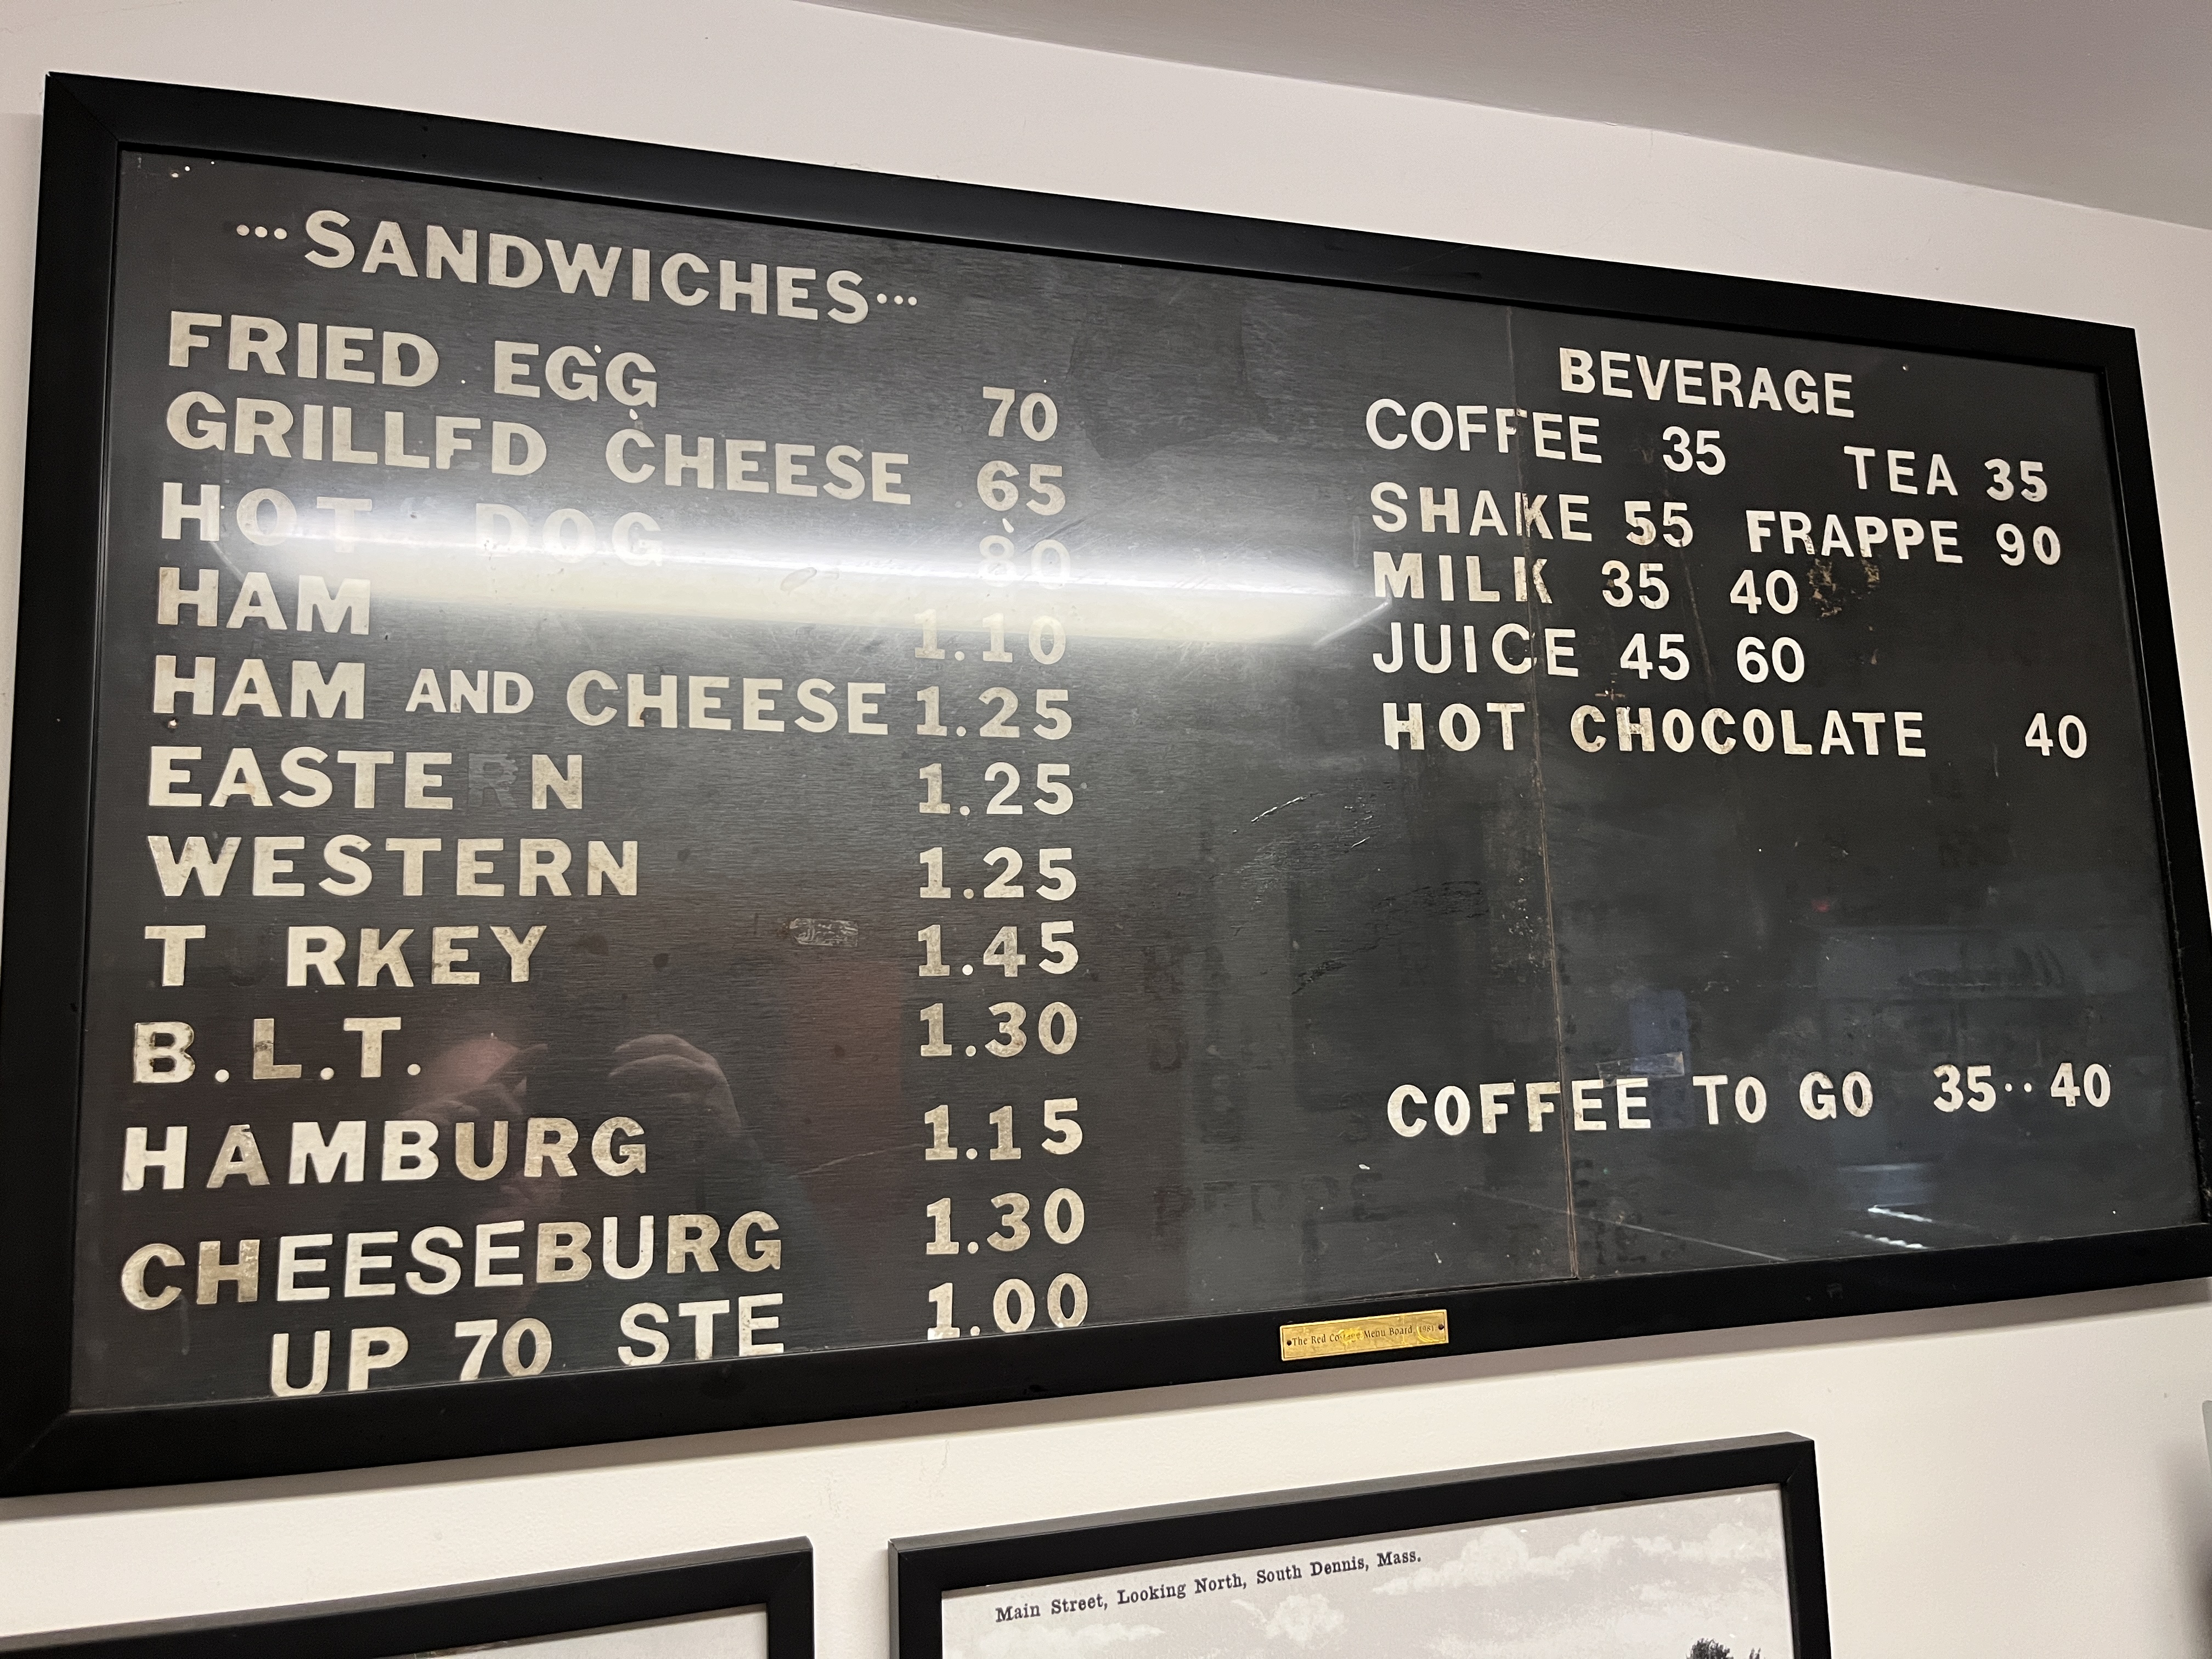 ···SANDWICHES···
FRIED EGG 70
GRILLFD CHEESE 65
HOT DOG 80
HAM 1.10
HAM AND CHEESE 1.25
EASTE N 1.25
WESTERN 1.25
T RKEY 1.45
B.L.T. 1.30
HAMBURG 1.15
CHEESEBURG 1.30
UP 70 STE 1.00
BEVERAGE
COFFEE 35 TEA 35
SHAKE 55 FRAPPE 90
MILK 35 40
JUICE 45 60
HOT CHOCOLATE 40
COFFEE TO GO 35··40
The Red Cottage Menu Board, 1981
Main Street, Looking North, South Dennis, Mass.